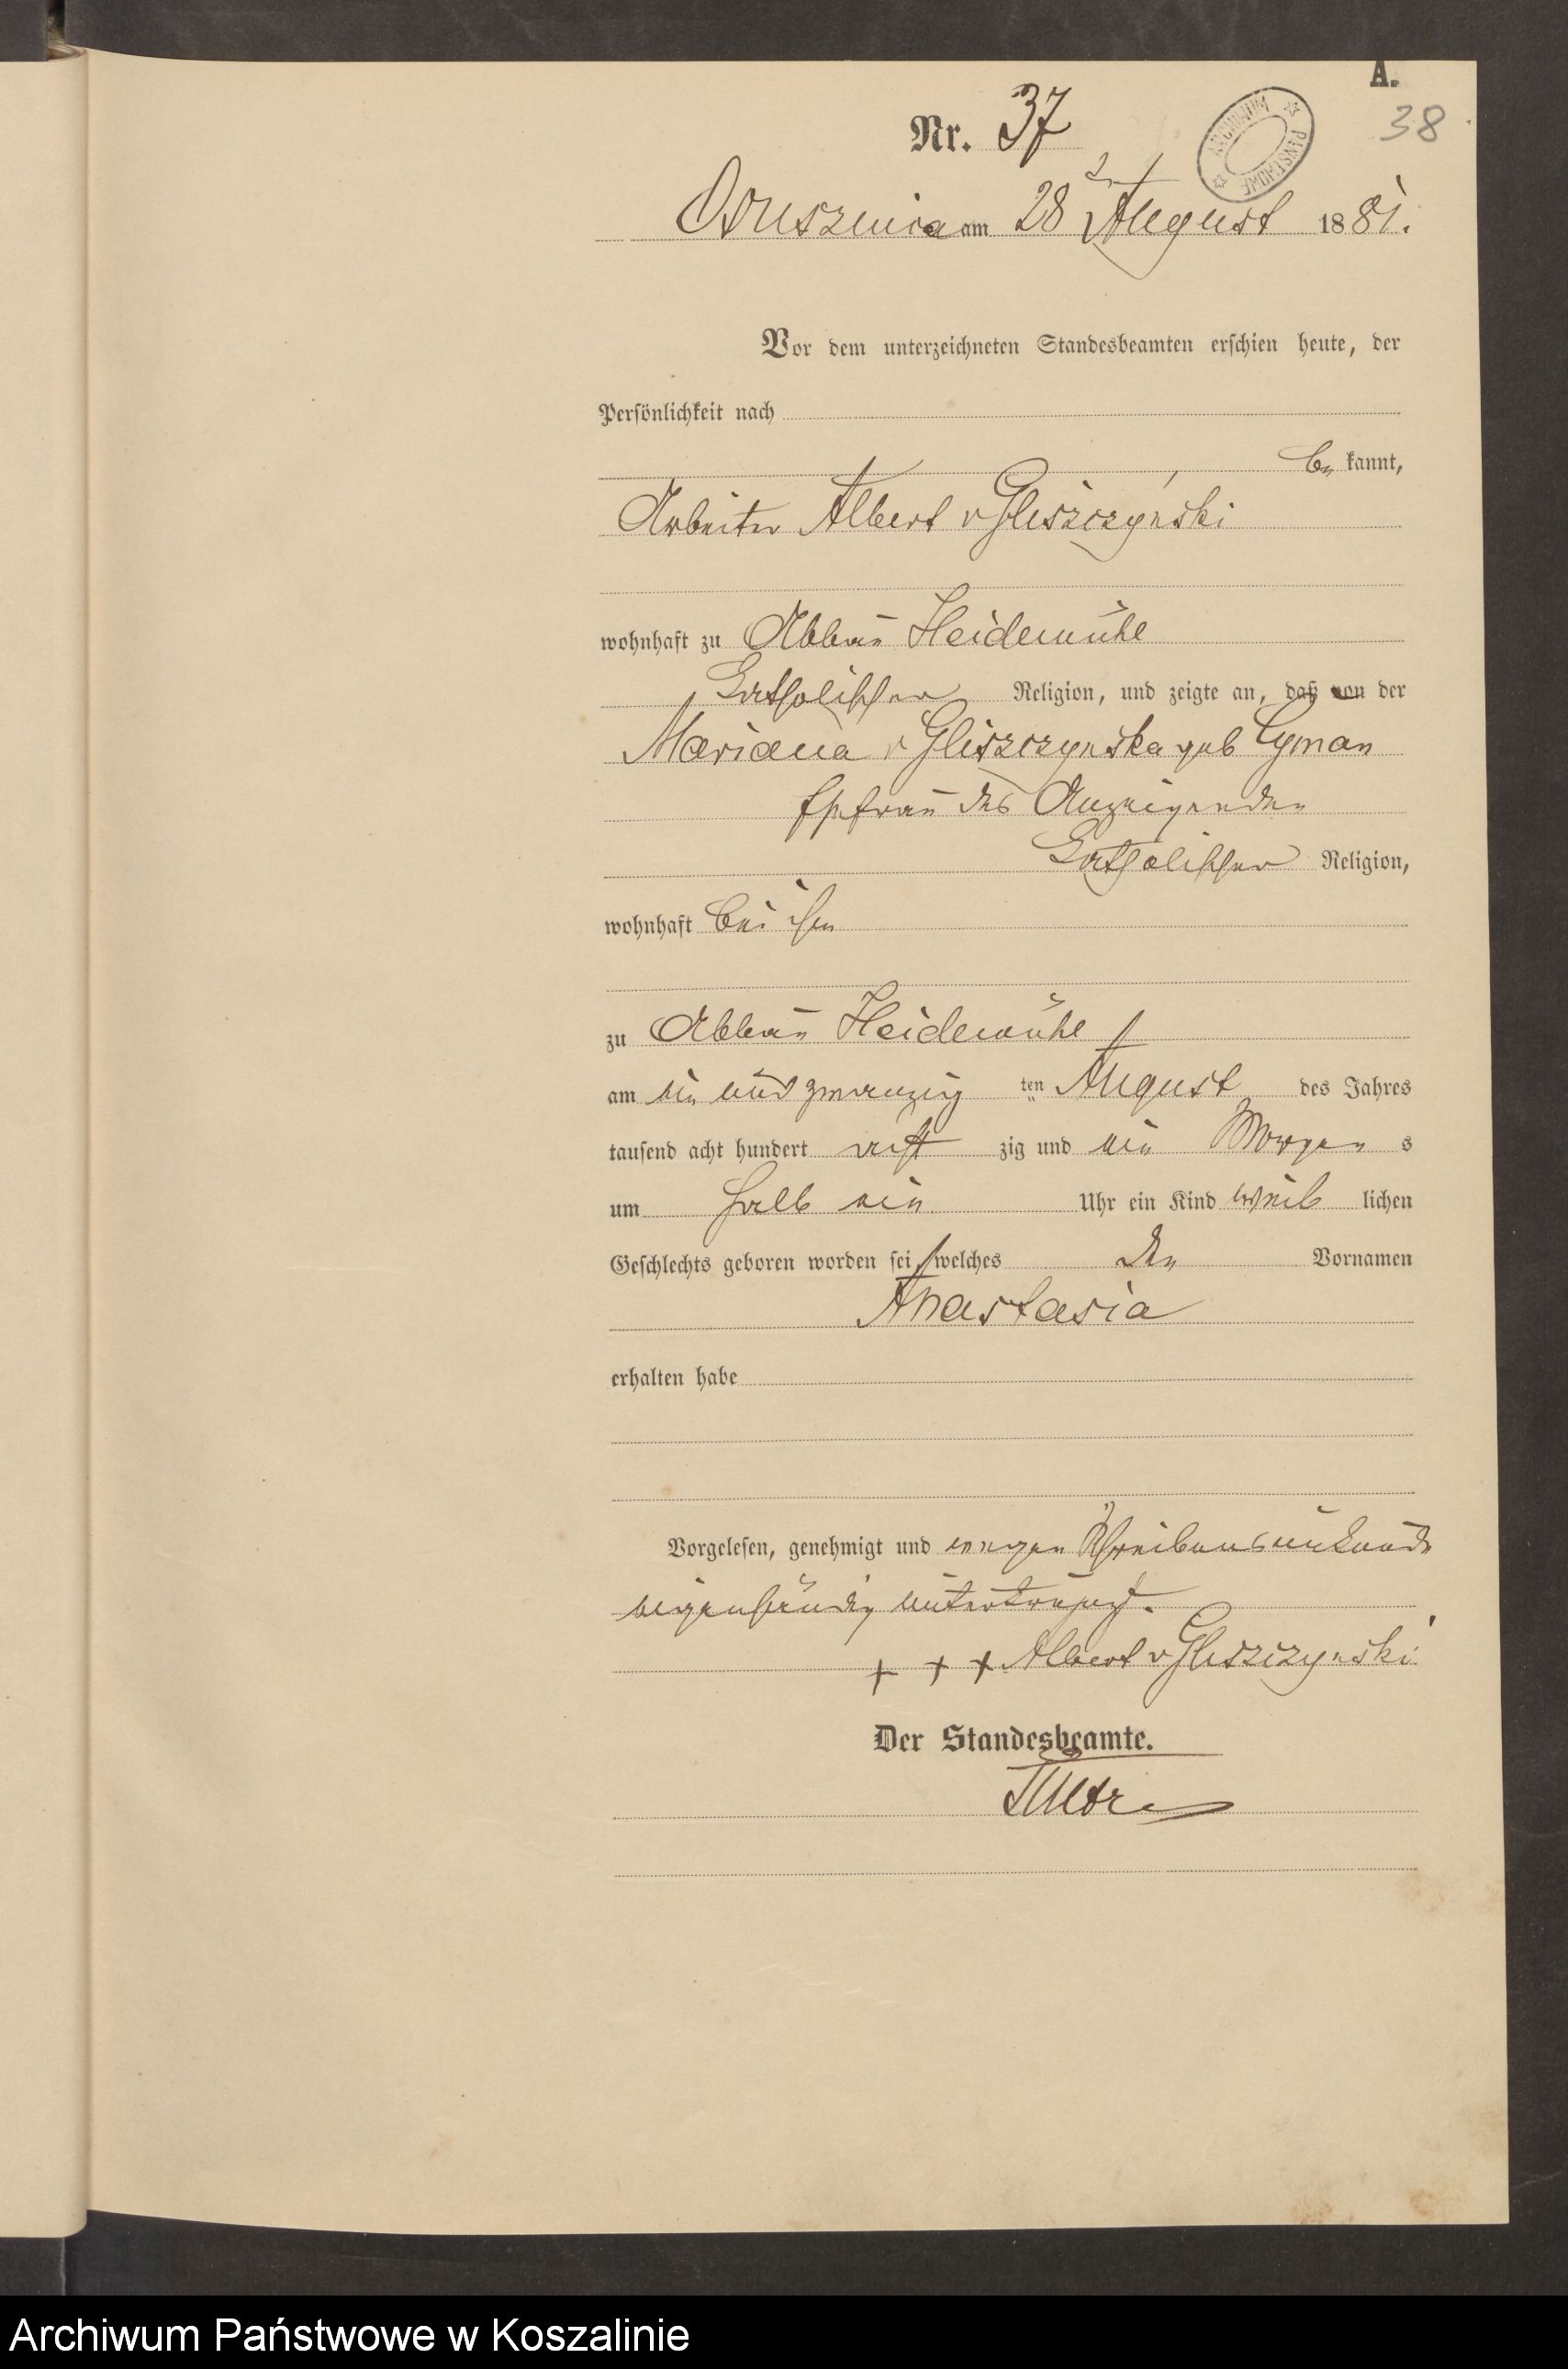 A.
38
Nr. 37
ARCHIWUM PAŃSTWOWE
Osusznica am 28 August 1881.
Vor dem unterzeichneten Standesbeamten erschien heute, der
Persönlichkeit nach
be kannt,
Arbeiter Albert v Gliszczynski
wohnhaft zu Abbau Heidemühl
katholischer Religion, und zeigte an, daß von der
Mariana v Gliszczynska geb Cyman
Ehefrau des Anzeigenden
katholischer Religion,
wohnhaft bei ihm
zu Abbau Heidemühl
am ein und zwanzig ten August des Jahres
tausend acht hundert acht zig und ein Morgen s
um halb ein Uhr ein Kind weib lichen
Geschlechts geboren worden sei, welches den Vornamen
Anastasia
erhalten habe
Vorgelesen, genehmigt und wegen Schreibensunkunde
eigenhändig unterkreuzt.
+ + + Albert v Gliszczynski
Der Standesbeamte.
Archiwum Państwowe w Koszalinie